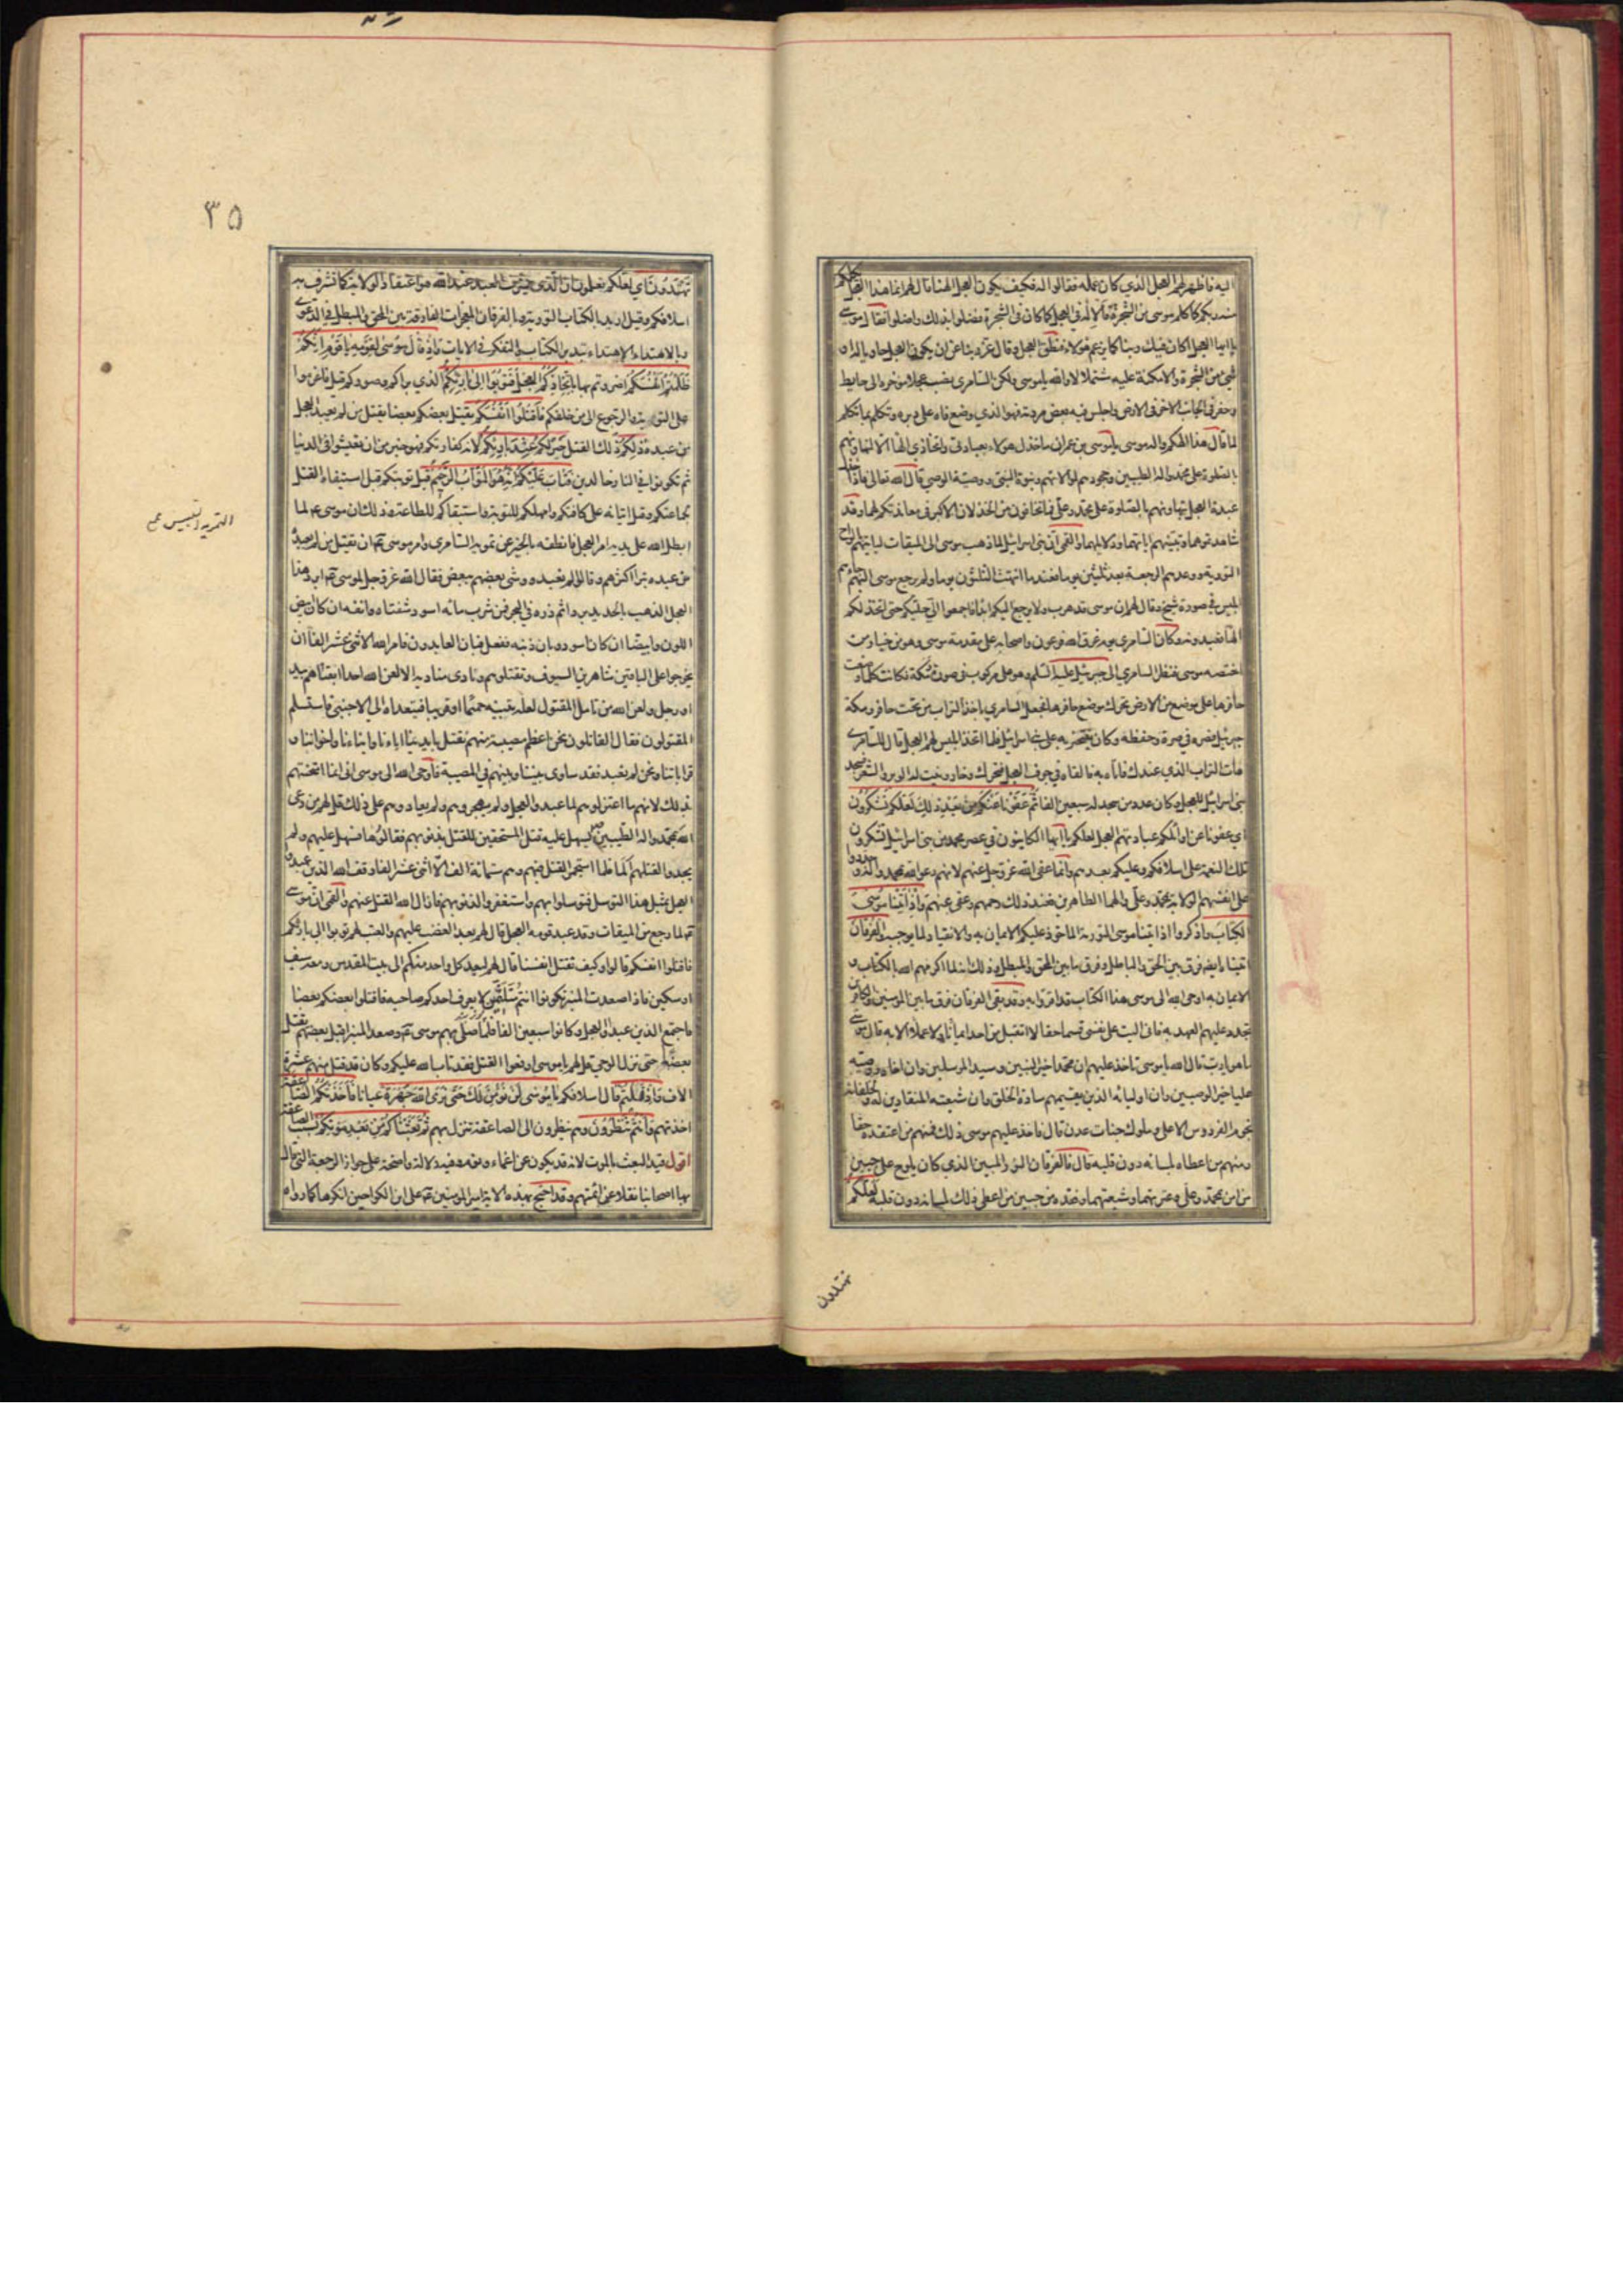 اليه فاظهر لهم العجل الذي كان عمله فقالوا له فكيف يكون العجل الهنا قال لهم انما هذا العجل يكلمكم
منه ربكم كما كلم موسى من الشجرة فالاله في العجل كما كان في الشجرة فضلوا بذلك واضلوا فقال موسى
يا ايها العجل اكان فيك ربنا كما يزعم هؤلاء فنطق العجل وقال عز ربنا عن ان يكون العجل حاويا له او
شيء من الشجرة والامكنة عليه مشتملا لا والله يا موسى ولكن السامري نصب عجلا مؤخره الى حايط
وحفر في الجانب الاخر في الارض واجلس فيه بعض مردته فهو الذي وضع فاه على دبره وتكلم بما تكلم
لما قال هذا الهكم واله موسى يا موسى بن عمران ما خذل هؤلاء بعبادتي واتخاذي الها الا لتهاونهم
بالصلوة على محمد واله الطيبين وجحودهم لموالاتهم ونبوة النبي ووصية الوصي قال الله تعالى فاذا خذل
عبدة العجل لتهاونهم بالصلوة على محمد وعلي فما تخافون من الخذلان الاكبر في معاندتكم لهما وقد
شاهدتموهما وتبينتم اياتهما ودلايلهما والقمي ان بني اسرائيل لما ذهب موسى الى الميقات لياتيهم بالواح
التورية ووعدهم الرجعة بعد ثلثين يوما فعندما انتهت الثلثون يوما ولم يرجع موسى اليهم جاءهم
ابليس في صورة شيخ وقال لهم ان موسى قد هرب ولا يرجع اليكم ابدا فاجمعوا الي حليكم حتى اتخذ لكم
الها تعبدونه وكان السامري يوم غرق الله فرعون واصحابه على مقدمة موسى وهو من خيار من
اختصه موسى فنظر السامري الى جبرئيل عليه السلم وهو على مركوب في صورة رمكة فكانت كلما وضعت
حافرها على موضع من الارض تحرك موضع حافرها فجعل السامري ياخذ التراب من تحت حافر رمكة
جبرئيل فصره في صرة وحفظه وكان يفتخر به على بني اسرائيل فلما اتخذ ابليس لهم العجل قال للسامري
هات التراب الذي عندك فاتاه به فالقاه في جوف العجل فتحرك وخار ونبت له الوبر والشعر فسجد
بنو اسرائيل للعجل وكان عدد من سجد له سبعين الفا ثم عفونا عنكم من بعد ذلك لعلكم تشكرون
اي عفونا عن اوائلكم عبادتهم العجل لعلكم يا ايها الكاينون في عصر محمد من بني اسرائيل تشكرون
تلك النعمة على اسلافكم وعليكم بعدهم وانما عفى الله عز وجل عنهم لانهم دعوا الله بمحمد واله وجددوا
على انفسهم الولاية لمحمد وعلي والهما الطاهرين فعند ذلك رحمهم وعفى عنهم واذ اتينا موسى
الكتاب واذكروا اذ اتينا موسى التورية الماخوذ عليكم الايمان به والانقياد لما يوجبه والفرقان
اتيناه ايضا فرق بين الحق والباطل وفرق ما بين المحق والمبطل وذلك انه لما اكرمهم الله بالكتاب و
الايمان به اوحى الله الى موسى هذا الكتاب قد اقروا به وقد بقي الفرقان فرق ما بين المؤمنين والكافرين
فجدد عليهم العهد به فاني اليت على نفسي قسما حقا لا اتقبل من احد ايمانا ولا عملا الا به قال موسى
ما هو يا رب قال الله يا موسى تاخذ عليهم ان محمدا خير النبيين وسيد المرسلين وان اخاه ووصيه
عليا خير الوصيين وان اوليائه الذين يقيمهم سادة الخلق وان شيعته المنقادين له ولخلفائه
نجوم الفردوس الاعلى وملوك جنات عدن قال فاخذ عليهم موسى ذلك فمنهم من اعتقده حقا
ومنهم من اعطاه بلسانه دون قلبه قال فالفرقان النور المبين الذي كان يلوح على جبين
من امن بمحمد وعلي وعترتهما وشيعتهما وفقده من جبين من اعطى ذلك بلسانه دون قلبه لعلكم
تهتدون
٣٥
تهتدون اي لعلكم تعلمون ان الذي يشرف العبد عند الله هو اعتقاد الولاية كما تشرف به
اسلافكم وقيل اريد بالكتاب التورية وبالفرقان المعجزات الفارقة بين المحق والمبطل في الدعوى
وبالاهتداء الاهتداء بتدبر الكتاب والتفكر في الايات واذ قال موسى لقومه يا قوم انكم
ظلمتم انفسكم اضررتم بها باتخاذكم العجل فتوبوا الى بارئكم الذي براكم وصوركم قيل فاعزموا
على التوبة والرجوع الى من خلقكم فاقتلوا انفسكم بقتل بعضكم بعضا يقتل من لم يعبد العجل
من عبده ذلكم ذلك القتل خير لكم عند بارئكم لانه كفارتكم فهو خير من ان تعيشوا في الدنيا
ثم تكونوا في النار خالدين فتاب عليكم انه هو التواب الرحيم قبل توبتكم قبل استيفاء القتل
لجماعتكم وقبل اتيانه على كافتكم وامهلكم للتوبة واستبقاكم للطاعة وذلك ان موسى ع لما
ابطل الله على يديه امر العجل فانطقه بالخبر عن تمويه السامري وامر موسى ع ان يقتل من لم يعبده
من عبده تبرا اكثرهم وقالوا لم نعبده ووشى بعضهم ببعض فقال الله عز وجل لموسى ع ابرد هذا
العجل الذهب بالحديد بردا ثم ذره في البحر فمن شرب مائه اسود شفتاه وانفه ان كان ابيض
اللون وابيضا ان كان اسود وبان ذنبه ففعل فبان العابدون فامر الله الاثنى عشر الفا ان
يخرجوا على الباقين شاهرين السيوف ويقتلوهم ونادى مناديه الا لعن الله احدا ابقاهم بيد
او رجل ولعن الله من تامل المقتول لعله تبينه حميما او قريبا فيتعداه الى الاجنبي فاستسلم
المقتولون فقال القاتلون نحن اعظم مصيبة منهم نقتل بايدينا اباءنا وابناءنا واخواننا و
قراباتنا ونحن لم نعبد فقد ساوى بيننا وبينهم في المصيبة فاوحى الله الى موسى اني انما امتحنتهم
بذلك لانهم ما اعتزلوهم لما عبدوا العجل ولم يهجروهم ولم يعادوهم على ذلك قل لهم من دعى
الله بمحمد واله الطيبين يسهل عليه قتل المستحقين للقتل بذنوبهم فقالوها فسهل عليهم ولم
يجدوا لقتلهم الما فلما استحر القتل فيهم وهم ستمائة الف الا اثني عشر الفا وقف الله الذين عبدوا
العجل بمثل هذا التوسل فتوسلوا بهم واستغفروا لذنوبهم فازال الله القتل عنهم والقمي ان موسى
ع لما رجع من الميقات وقد عبد قومه العجل قال لهم بعد الغضب عليهم والعتب لهم توبوا الى بارئكم
فاقتلوا انفسكم قالوا وكيف نقتل انفسنا قال لهم ليعد كل واحد منكم الى بيت المقدس ومعه سيف
او سكين فاذا صعدت المنبر تكونوا انتم متلثمين لا يعرف احدكم صاحبه فاقتلوا بعضكم بعضا
فاجتمع الذين عبدوا العجل وكانوا سبعين الفا فلما صلى بهم موسى ع وصعد المنبر اقبل بعضهم يقتل
بعضا حتى نزل الوحي قل لهم يا موسى ارفعوا القتل فقد تاب الله عليكم وكان قد قتل منهم عشرة
الاف واذ قلتم قال اسلافكم يا موسى لن نؤمن لك حتى نرى الله جهرة عيانا فاخذتكم الصاعقة
اخذتهم وانتم تنظرون وهم ينظرون الى الصاعقة تنزل بهم ثم بعثناكم من بعد موتكم بسبب الصاعقة
اقول قيد البعث بالموت لانه قد يكون عن اغماء ونوم وفيه دلالة واضحة على جواز الرجعة التي قال
بها اصحابنا نقلا عن ائمتهم وقد احتج بهذه الاية امير المؤمنين ع على ابن الكوا حين انكرها كما رواه
التمويه التلبيس